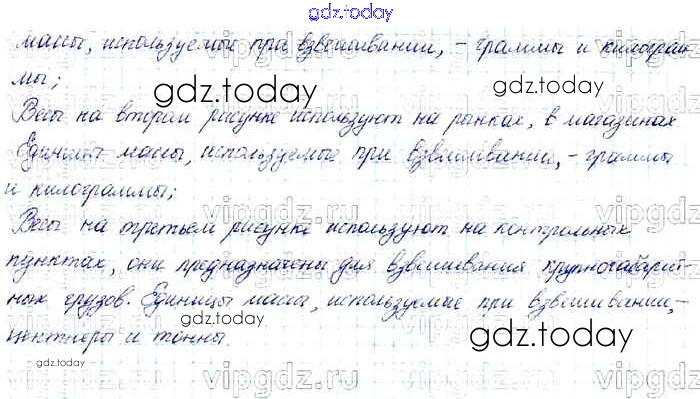 gdz.today
массы, используемые при взвешивании, – граммы и килограм-
мы;
gdz.today
gdz.today
Весы на втором рисунке используют на рынках, в магазинах
Единицы массы, используемые при взвешивании, – граммы
и килограммы;
vipgdz.ru
vipgdz.ru
Весы на третьем рисунке используют на контрольных
пунктах, они предназначены для взвешивания крупногабарит-
ных грузов. Единицы массы, используемые при взвешивании, –
центнеры и тонны.
gdz.today
gdz.today
vipgdz.ru
vipgdz.ru